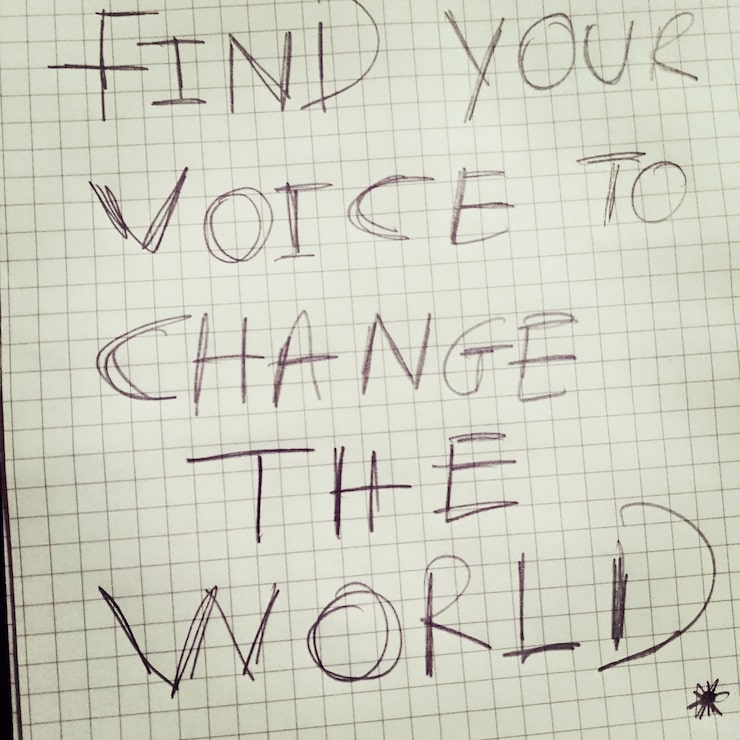 FIND YOUR
VOICE TO
CHANGE
THE
WORLD
*